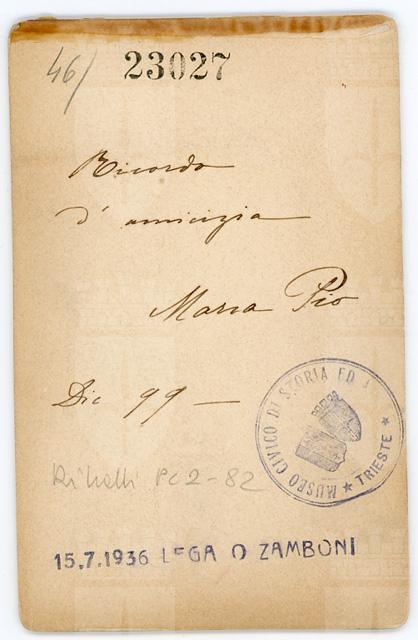 46/ 23027
Ricordo
d'amicizia
Maria Pio
Dic 99 —
Pc2-82
MUSEO CIVICO DI STORIA ED A
★ TRIESTE ★
15.7.1936 LEGA O ZAMBONI